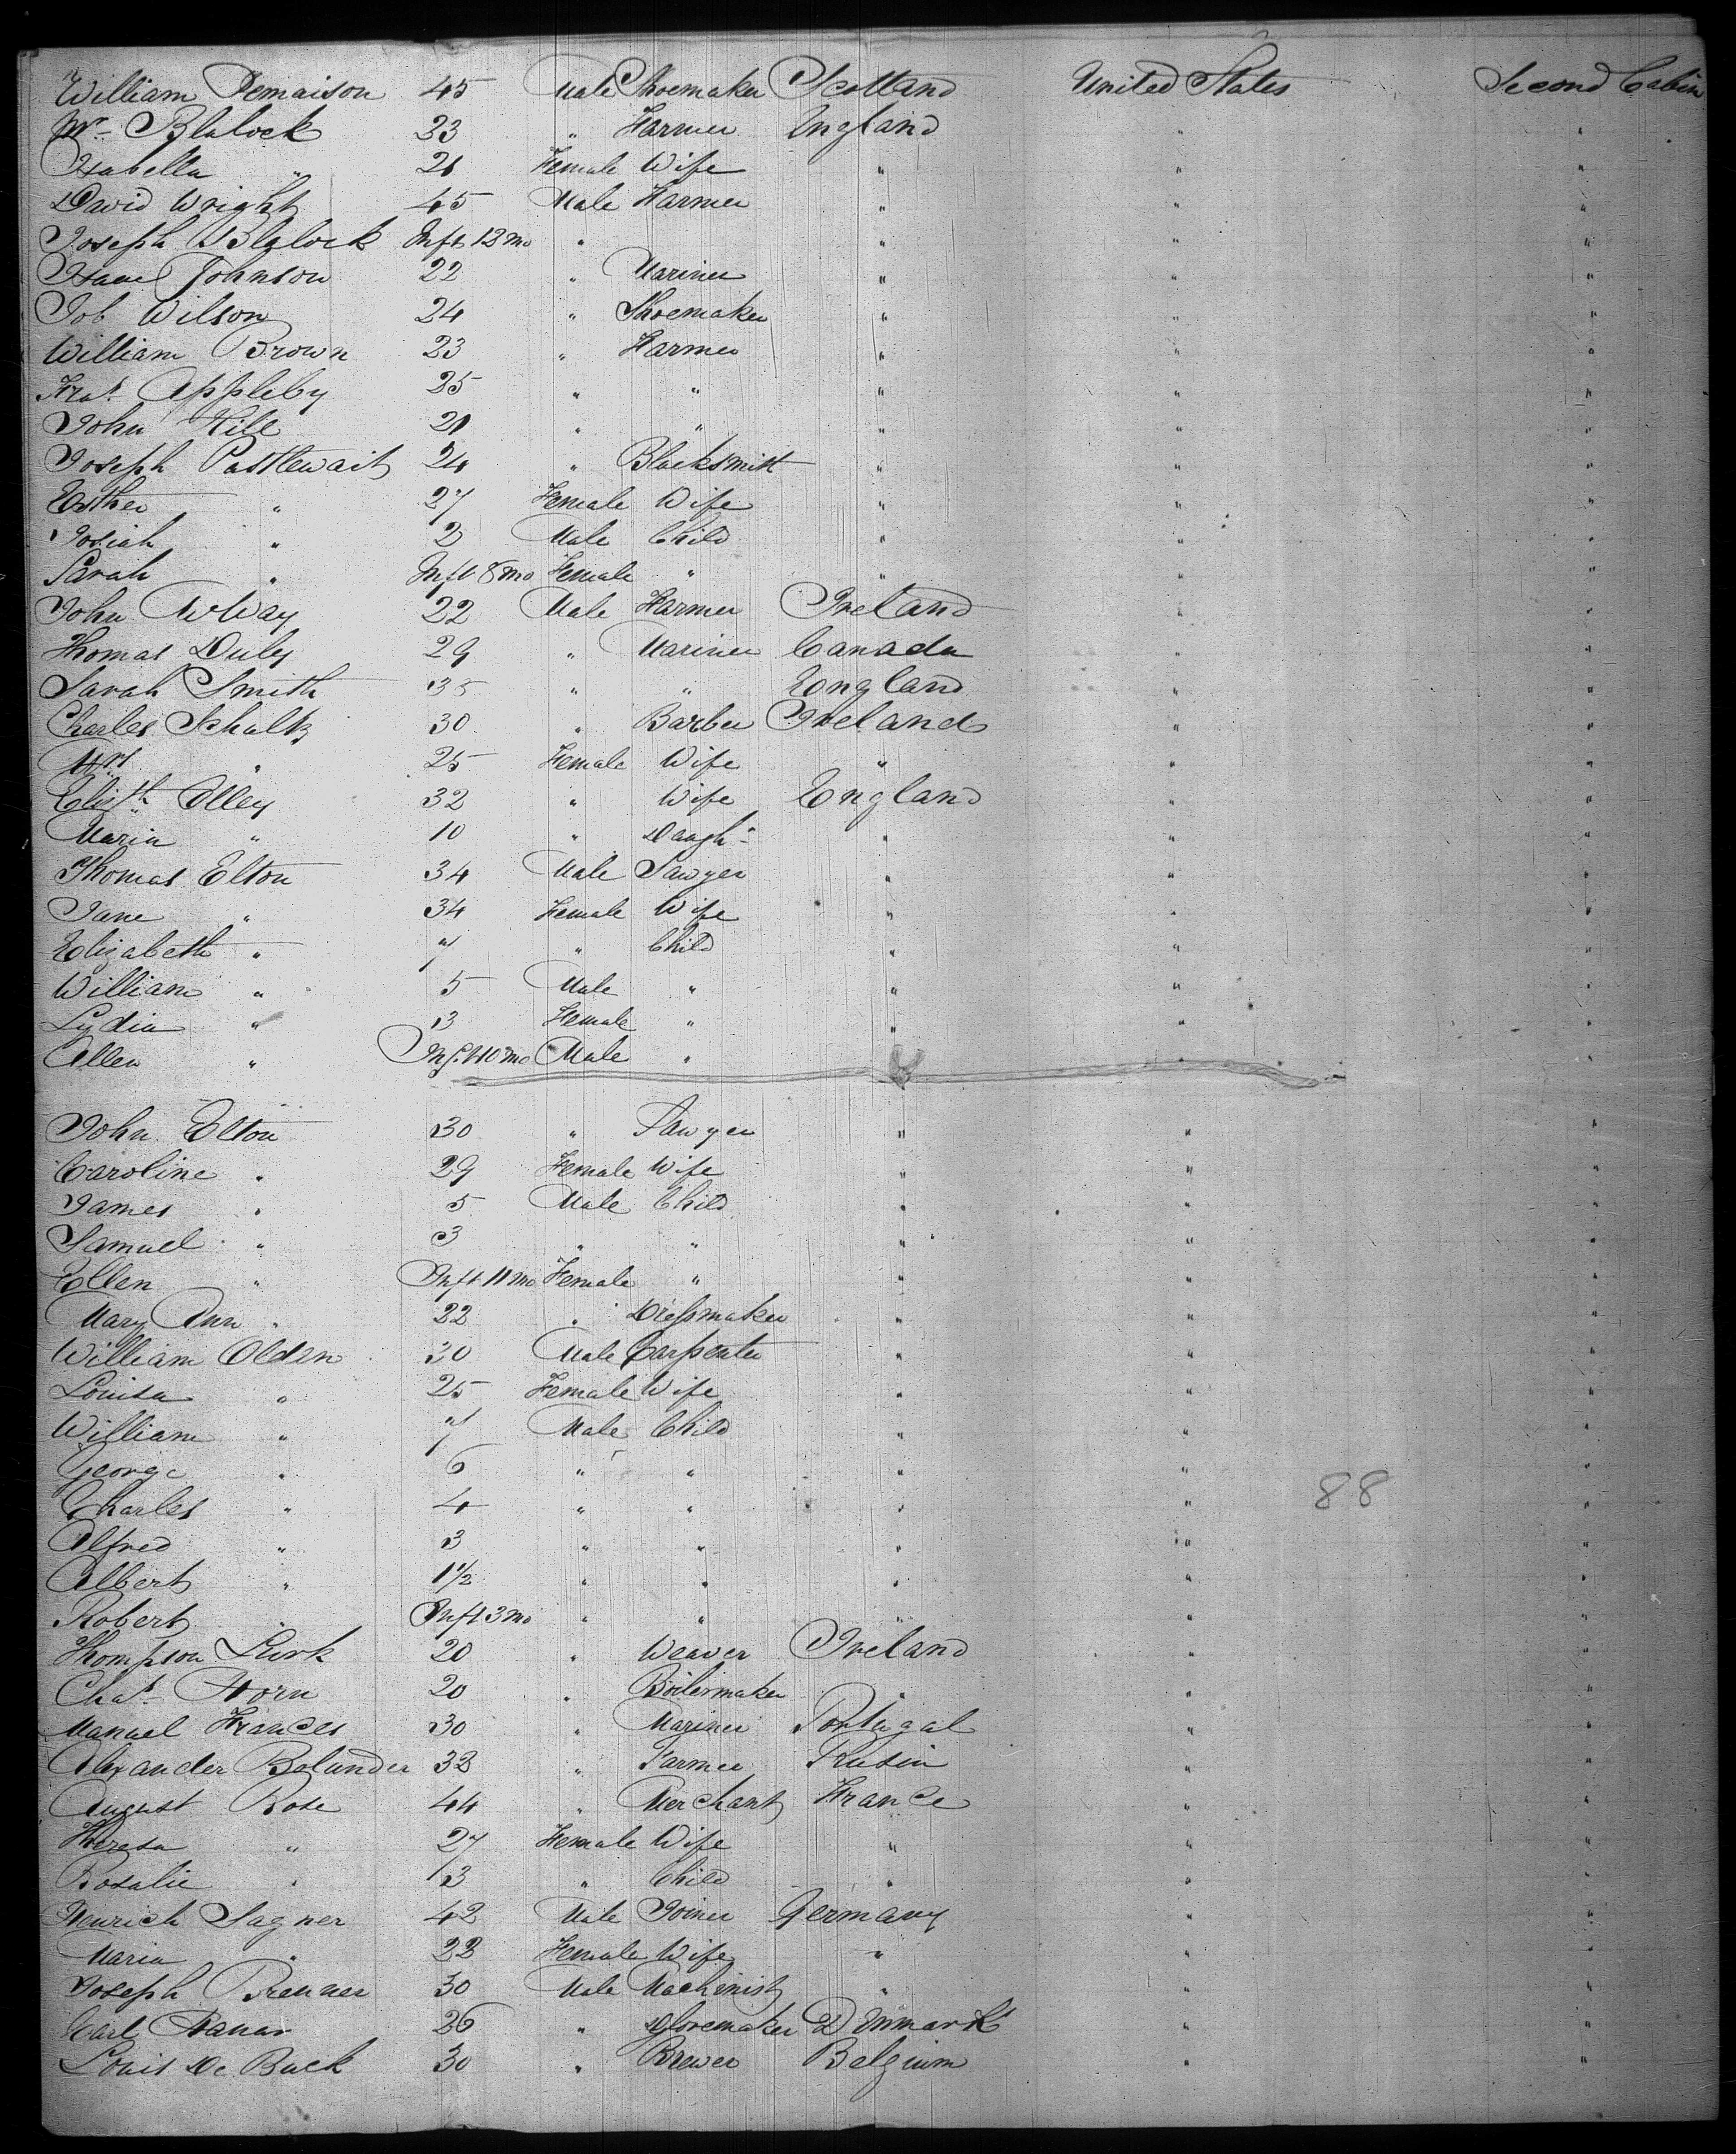 William Demaison 45 Male Shoemaker Scotland United States Second Cabin
Wm Blalock 23 " Farmer England " "
Isabella " 21 Female Wife " " "
David Wright 45 Male Farmer " " "
Joseph Blalock Inft 12 mo " " " "
Isaac Johnson 22 " Mariner " " "
Job Wilson 24 " Shoemaker " " "
William Brown 23 " Farmer " " "
Fras. Appleby 25 " " " " "
John Hill 21 " " " " "
Joseph Postlewait 24 " Blacksmith " " "
Esther " 27 Female Wife " " "
Josiah " 2 Male Child " " "
Sarah " Inft 8 mo Female " " " "
John 22 Male Farmer Ireland " "
Thomas Duly 29 " Mariner Canada " "
Sarah Smith 35 " " England " "
Charles Schultz 30 " Barber Ireland " "
Mrs " 25 Female Wife " " "
Elisth Olley 32 " Wife England " "
Maria " 10 " Daugh- " " "
Thomas Elton 34 Male Sawyer " " "
Jane " 34 Female Wife " " "
Elizabeth " 7 " Child " " "
William " 5 Male " " " "
Lydia " 3 Female " " " "
Allen " Inft 10 mo Male " "
John Elton 30 " Sawyer " " "
Caroline " 29 Female Wife " " "
James " 5 Male Child " " "
Samuel " 3 " " " " "
Ellen " Inft 11 mo Female " " " "
Mary Ann " 22 " Dressmaker " " "
William Olden 30 Male Carpenter " " "
Louisa " 25 Female Wife " " "
William " 7 Male Child " " "
George " 6 " " " " "
Charles " 4 " " " " 88 "
Alfred " 3 " " " " "
Albert " 1½ " " " " "
Robert " Inft 3 mo " " " " "
Thompson Lurk 20 " Weaver Ireland " "
Chas. Horn 20 " Boilermaker " " "
Manuel Frances 30 " Mariner Portugal " "
Alexander Bolunder 32 " Farmer Rusia " "
August Rose 44 " Merchant France " "
Theresa " 27 Female Wife " " "
Rosalie " 13 " Child " " "
Henrich Sagner 42 Male Joiner Germany " "
Maria " 22 Female Wife " " "
Joseph Brenner 30 Male Machinist " " "
Carl 26 " Glovemaker Denmark " "
Louis De Buck 30 " Brewer Belgium " "